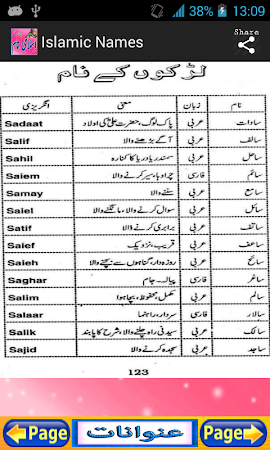 38% 13:09
Islamic Names
Share
لڑکوں کے نام
نام زبان معنی انگریزی
سادات عربی پاک لوگ، حضرت علیؓ کی اولاد Sadaat
سالف عربی آگے بڑھنے والا Salif
ساحل عربی سمندر یا دریا کا کنارہ Sahil
سائم فارسی چرواہا، سیر کرنے والا Saiem
سامع عربی سننے والا Samay
سائل عربی سوال کرنے والا، مانگنے والا Saiel
عربی برابری کرنے والا Satif
عربی قریب، نزدیک Saief
سائح عربی روزہ دار، گناہوں سے بچنے والا Saieh
ساغر فارسی پیالہ، جام Saghar
سالم عربی مکمل، محفوظ، بچا ہوا Salim
سالار فارسی سردار، راہنما Salaar
سالک عربی سیدھی راہ چلنے والا، شرع کا پابند Salik
ساجد عربی سجدہ کرنے والا Sajid
123
Page عنوانات Page